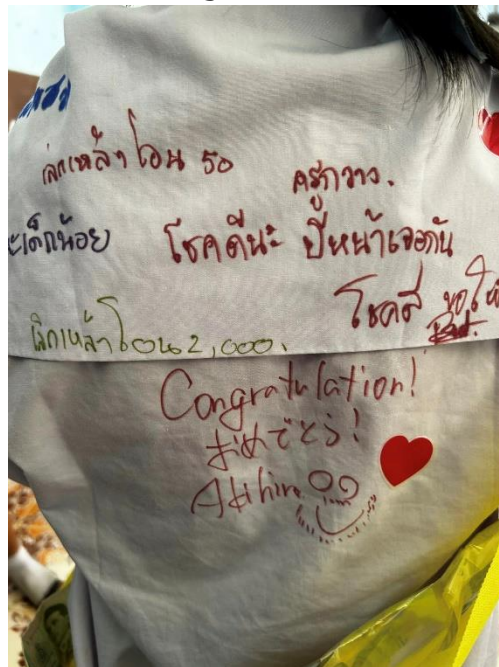 เลิกเหล้าโอน 50
ครูกวาง.
ะเด็กน้อย
โชคดีนะ ปีหน้าเจอกัน
โชคดี ขอให้
เลิกเหล้าโอน 2,000.
Congratulation!
おめでとう!
Akihiro